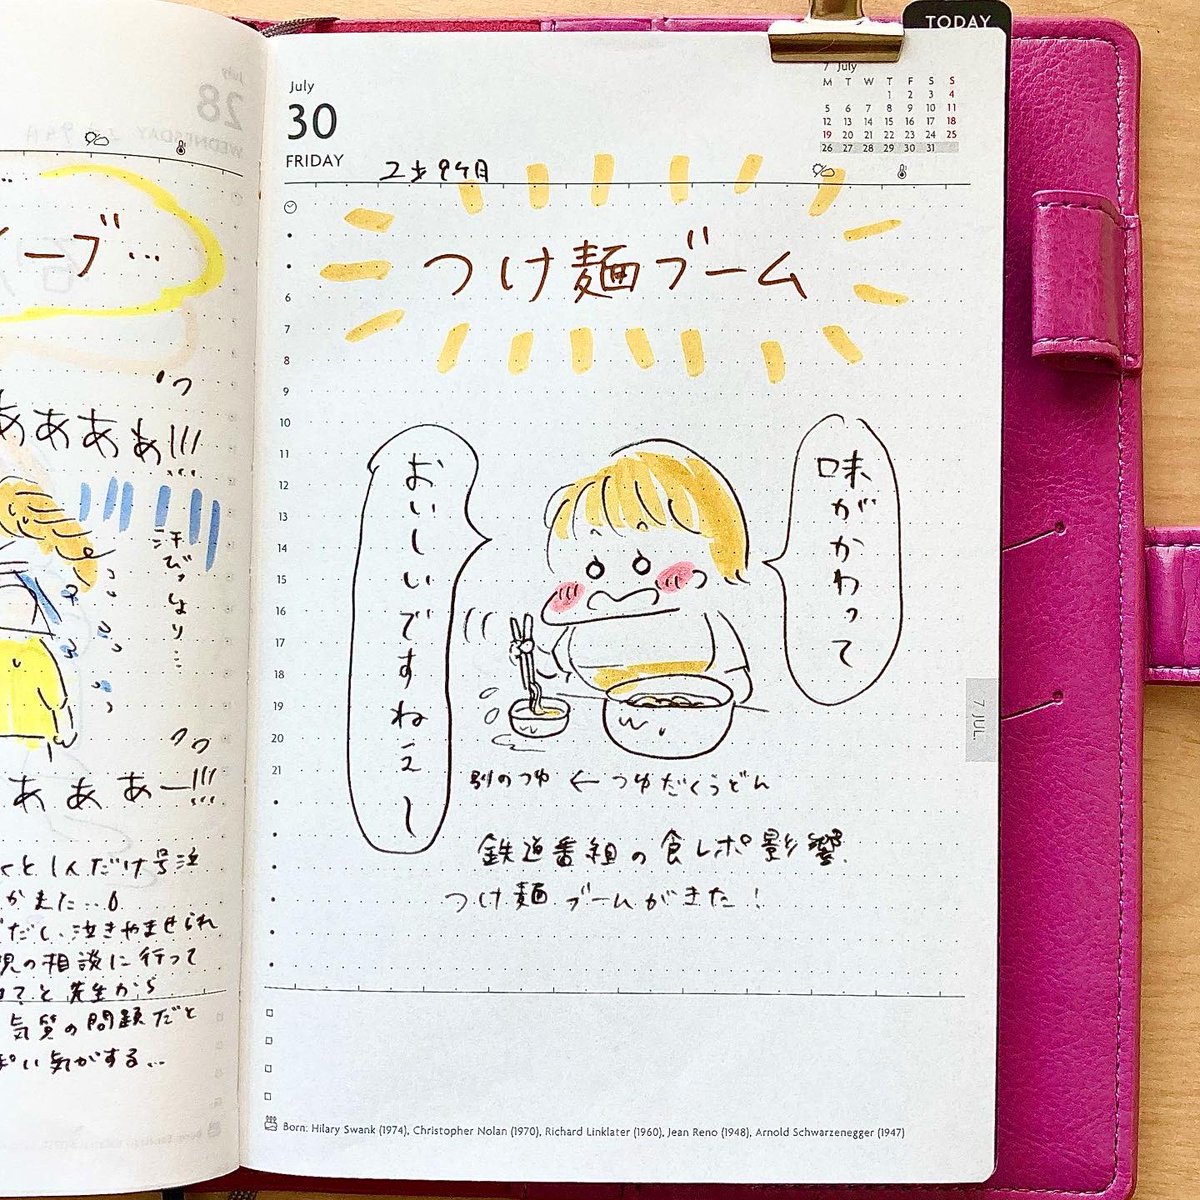 July
28
WEDNESDAY
ーブ…
ああああ!!!
汗びっしょり…
あああー!!!
くとしんだけ号泣
かまた…。
だし、泣きやませられ
児の相談に行って
てと先生から
気質の問題だと
ぽい気がする…
TODAY
7 July
M T W T F S S
1 2 3 4
5 6 7 8 9 10 11
12 13 14 15 16 17 18
19 20 21 22 23 24 25
26 27 28 29 30 31
July
30
FRIDAY
2才9ヶ月
つけ麺ブーム
6
7
8
9
10
11
12
13
14
15
16
17
18
19
20
21
味がかわって
おいしいですねぇ〜
別のつゆ ← つゆだくうどん
鉄道番組の食レポ影響
つけ麺ブームがきた!
7 JUL.
Born: Hilary Swank (1974), Christopher Nolan (1970), Richard Linklater (1960), Jean Reno (1948), Arnold Schwarzenegger (1947)